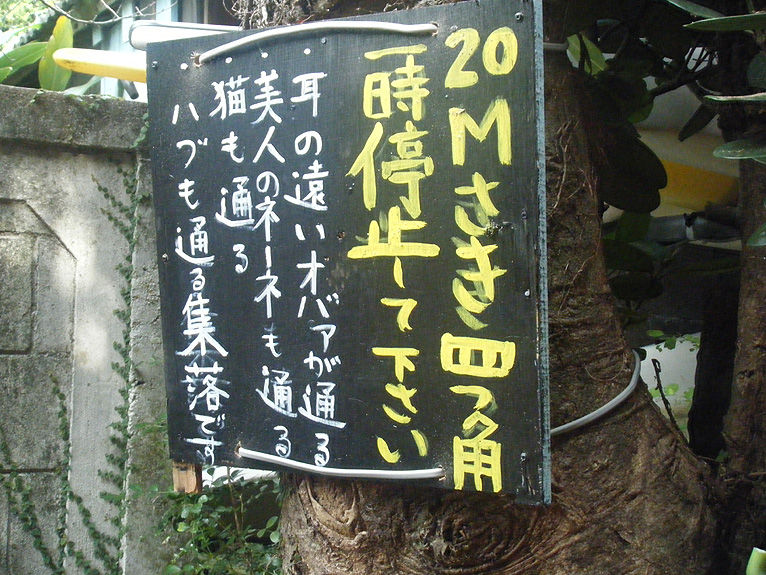 20Mさき四つ角
一時停止して下さい
・耳の遠いオバァが通る
・美人のネーネーも通る
・猫も通る
・ハブも通る集落です